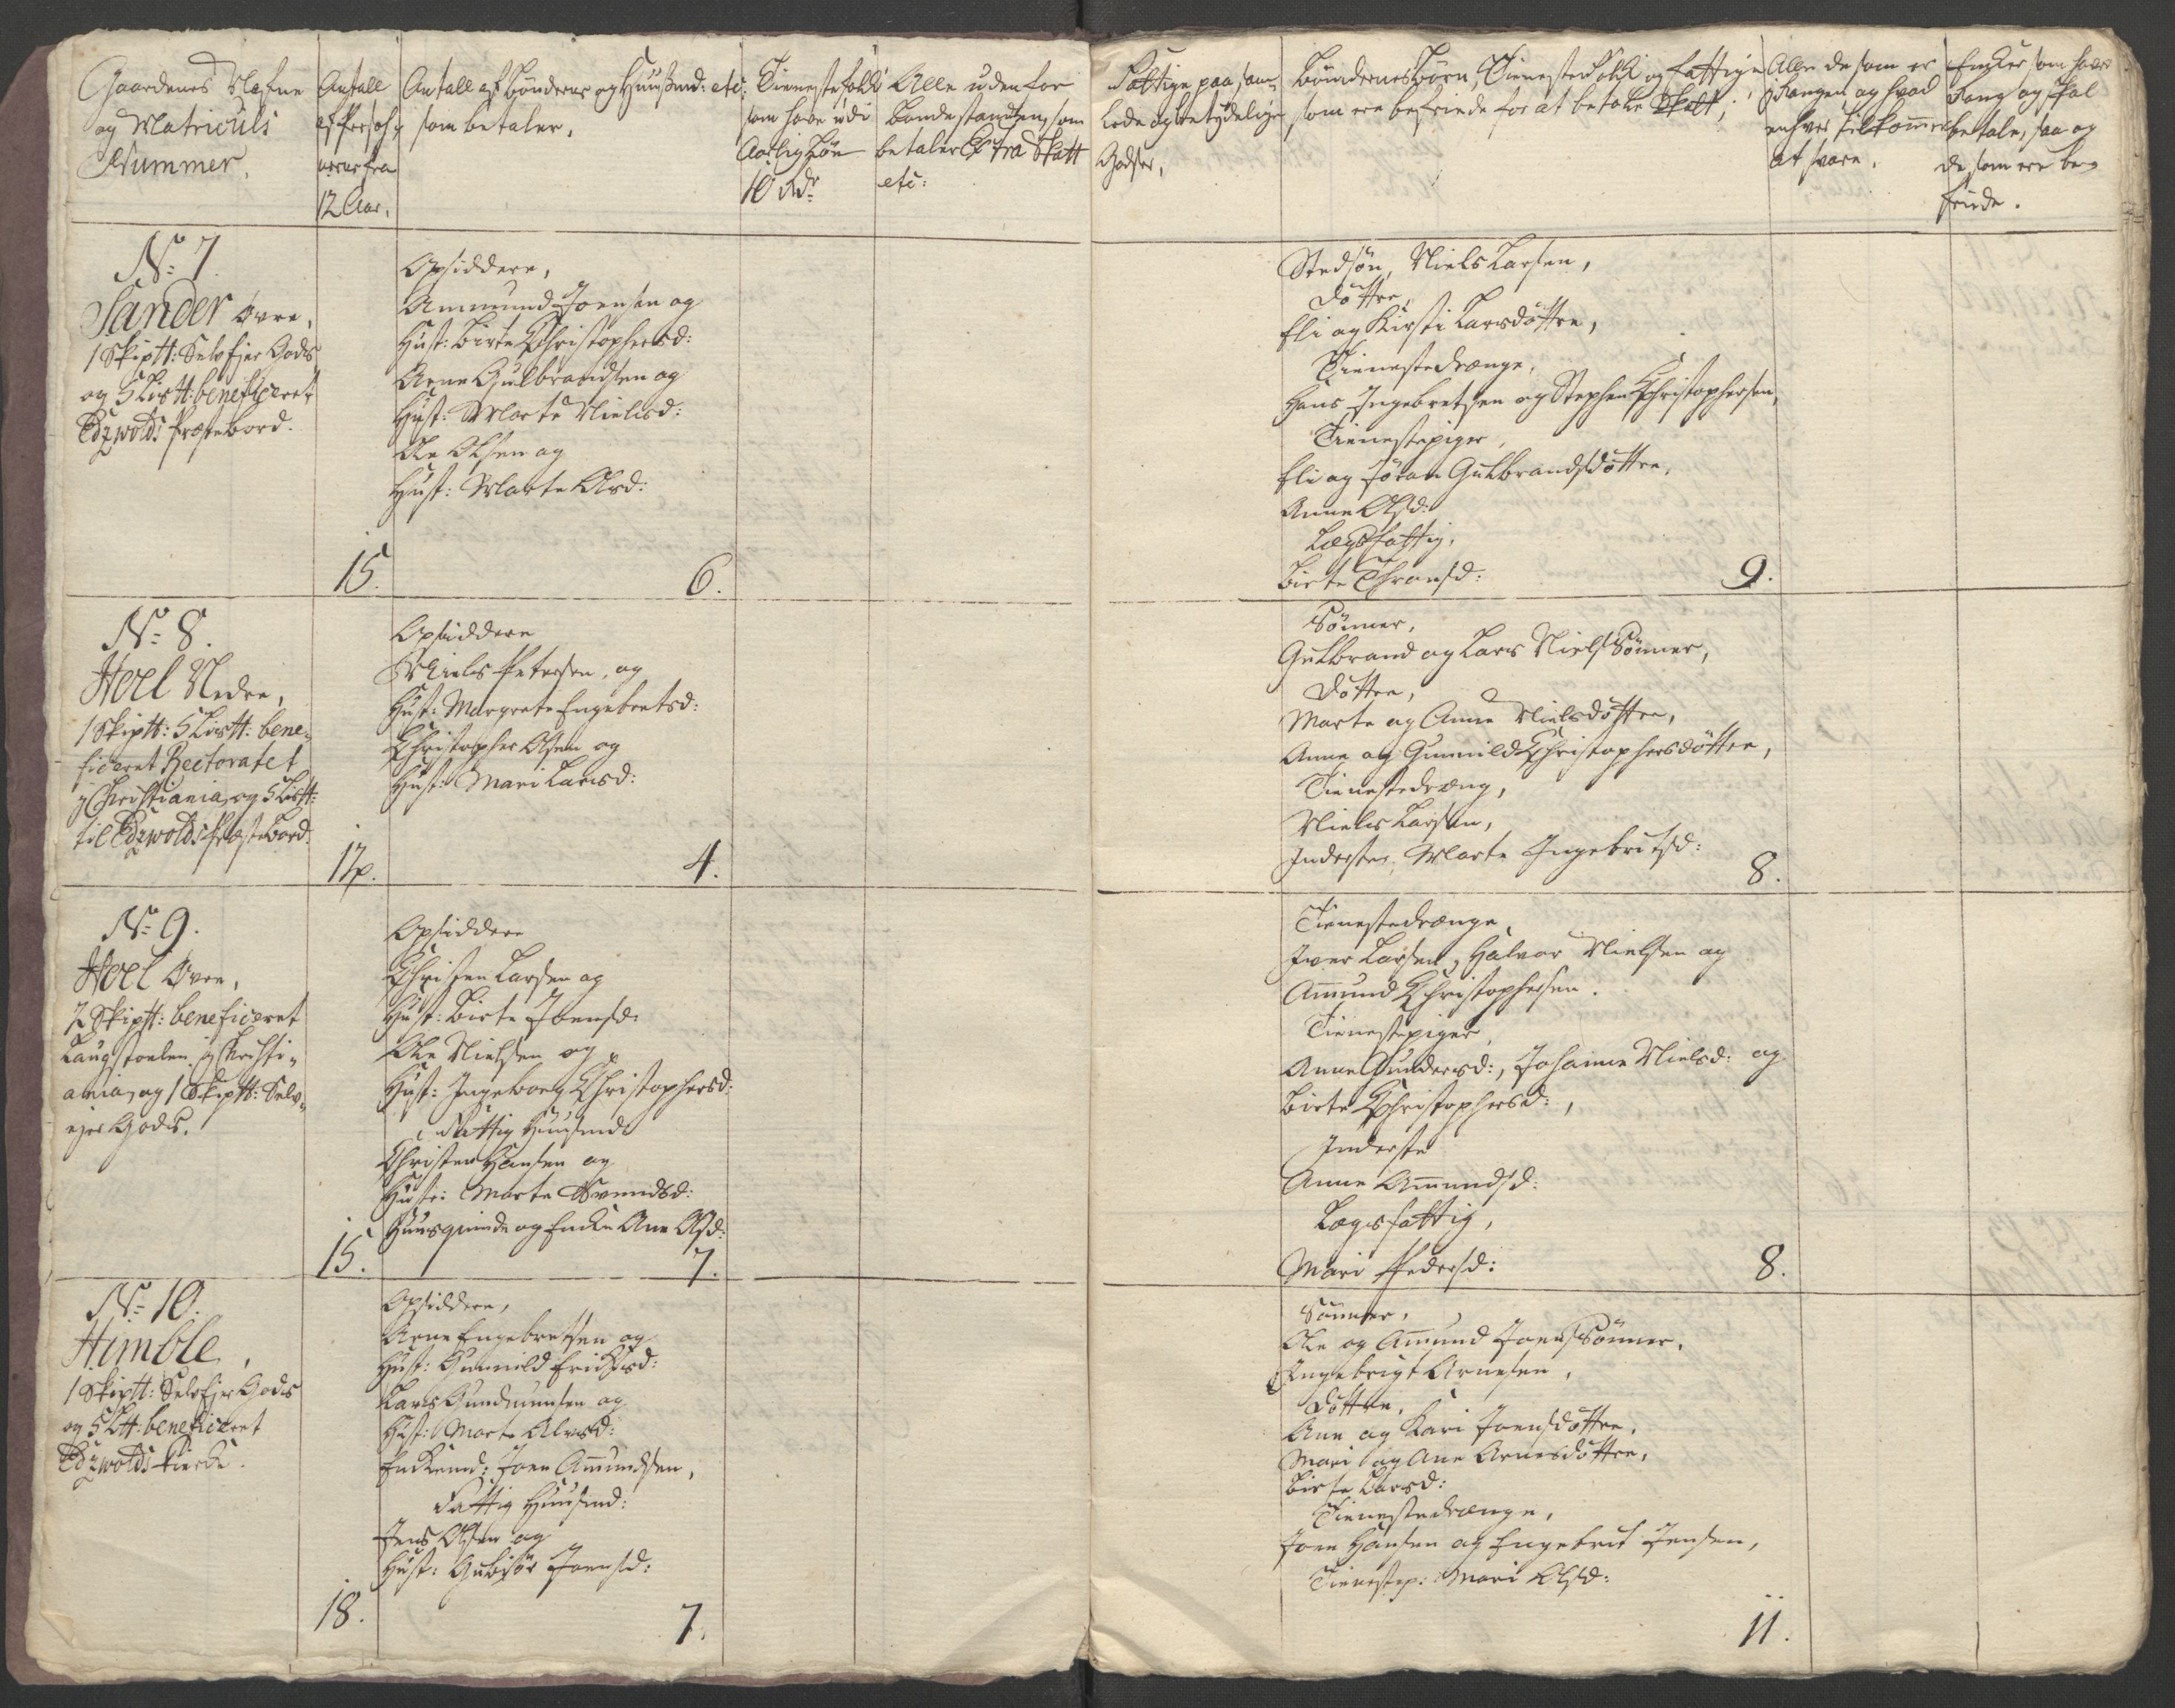 Gaardenes Nafne
og Matriculs
Nummer.
Antall
af Persohn
erne fra
12 Aar.
Antall af Bønderne og Huusmd: etc:
som betaler.
Tienestefolk
som have udi
Aarlig Løn
10 Rdr
Alle uden for
bondestanden, som
betaler Extra Skatt
etc:
Fattige paa sam-
lede og betydelige
Godser,
Bøndernes Børn, Tienestefolk og Fattige
som ere befriede for at betale Skatt;
Alle de som er
i Rangen og hvad
enhver tilkommer
at svare.
Enker som haver
Rang og skal
betale, saa og
de som ere be-
friede.
No 7.
Sander Øvre,
1 Skiptt: Selvejer Gods
og 5 Listt: beneficeret
Edzwolds Præstebord.
15.
Opsiddere,
Ammund Joensen og
Hust: Birte Christophersd:
Arne Gulbrandsen og
Hust: Marte Nielsd:
Ole Olsen og
Hust: Marte Olsd:
6.
Stedsøn, Niels Larsen,
Døttre,
Eli og Kirsti Larsdøttre,
Tienestedrænge,
Hans Ingebretsen og Stephen Christophersen,
Tienestepiger,
Eli og Jøran Gulbrandsdøttre,
Anne Olsd:
Lægsfattig,
Birte Thronsd:
9.
No 8.
Hoel Nedre,
1 Skiptt: 5 Listt: bene-
ficeret Rectoratet
i Christiania, og 5 Listt:
til Edzwolds Præstebord.
12.
Opsiddere
Niels Petersen, og
Hust: Margrete Engebretsd:
Christopher Olsen og
Hust: Mari Larsd:
4.
Sønner,
Gulbrand og Lars Niels Sønner,
Døttre,
Marte og Anne Nielsdøttre,
Anne og Gunnild Christophersdøttre,
Tienestedræng,
Niels Larsen,
Inderste, Marte Ingebritsd:
8.
No 9.
Hoel Øvre,
2 Skiptt: beneficeret
Laugstoelen i Christi-
ania, og 1 Skiptt: Selv-
ejer Gods.
15.
Opsiddere
Christen Larsen og
Hust: Birte Joensd:
Ole Nielsen og
Hust: Ingeborg Christophersd:
Fattig Huusmd
Christen Hansen og
Hustr: Marte Svendsd:
Huusqvinde og Enke Ane Olsd:
7.
Tienestedrænge
Iver Larsen, Halvor Nielsen og
Amund Christophersen.
Tienestepiger,
Anne Gundersd:, Johanne Nielsd: og
Birte Christophersd:,
Inderste
Anne Amundsd:
Lægsfattig,
Mari Pedersd:
8.
No 10.
Himble,
1 Skiptt: Selvejer Gods
og 5 Ltt: beneficeret
Edzwolds Kirke.
18.
Opsiddere,
Arne Engebretsen og
Hust: Gunnild Erichsd:
Lars Gudmunsen og
Hust: Marte Alvsd:
Enkemd: Joen Amundsen,
Fattig Huusmd:
Jens Olsen og
Hust: Gubjør Joensd:
7.
Sønner,
Ole og Amund Joens Sønner,
Ingebrigt Arnesen,
Døttre,
Ane og Kari Joensdøttre,
Mari og Ane Arnesdøttre,
Birte Larsd:
Tienestedrænge,
Joen Hansen og Engebret Jensen,
Tienestep: Mari Olsd:
11.